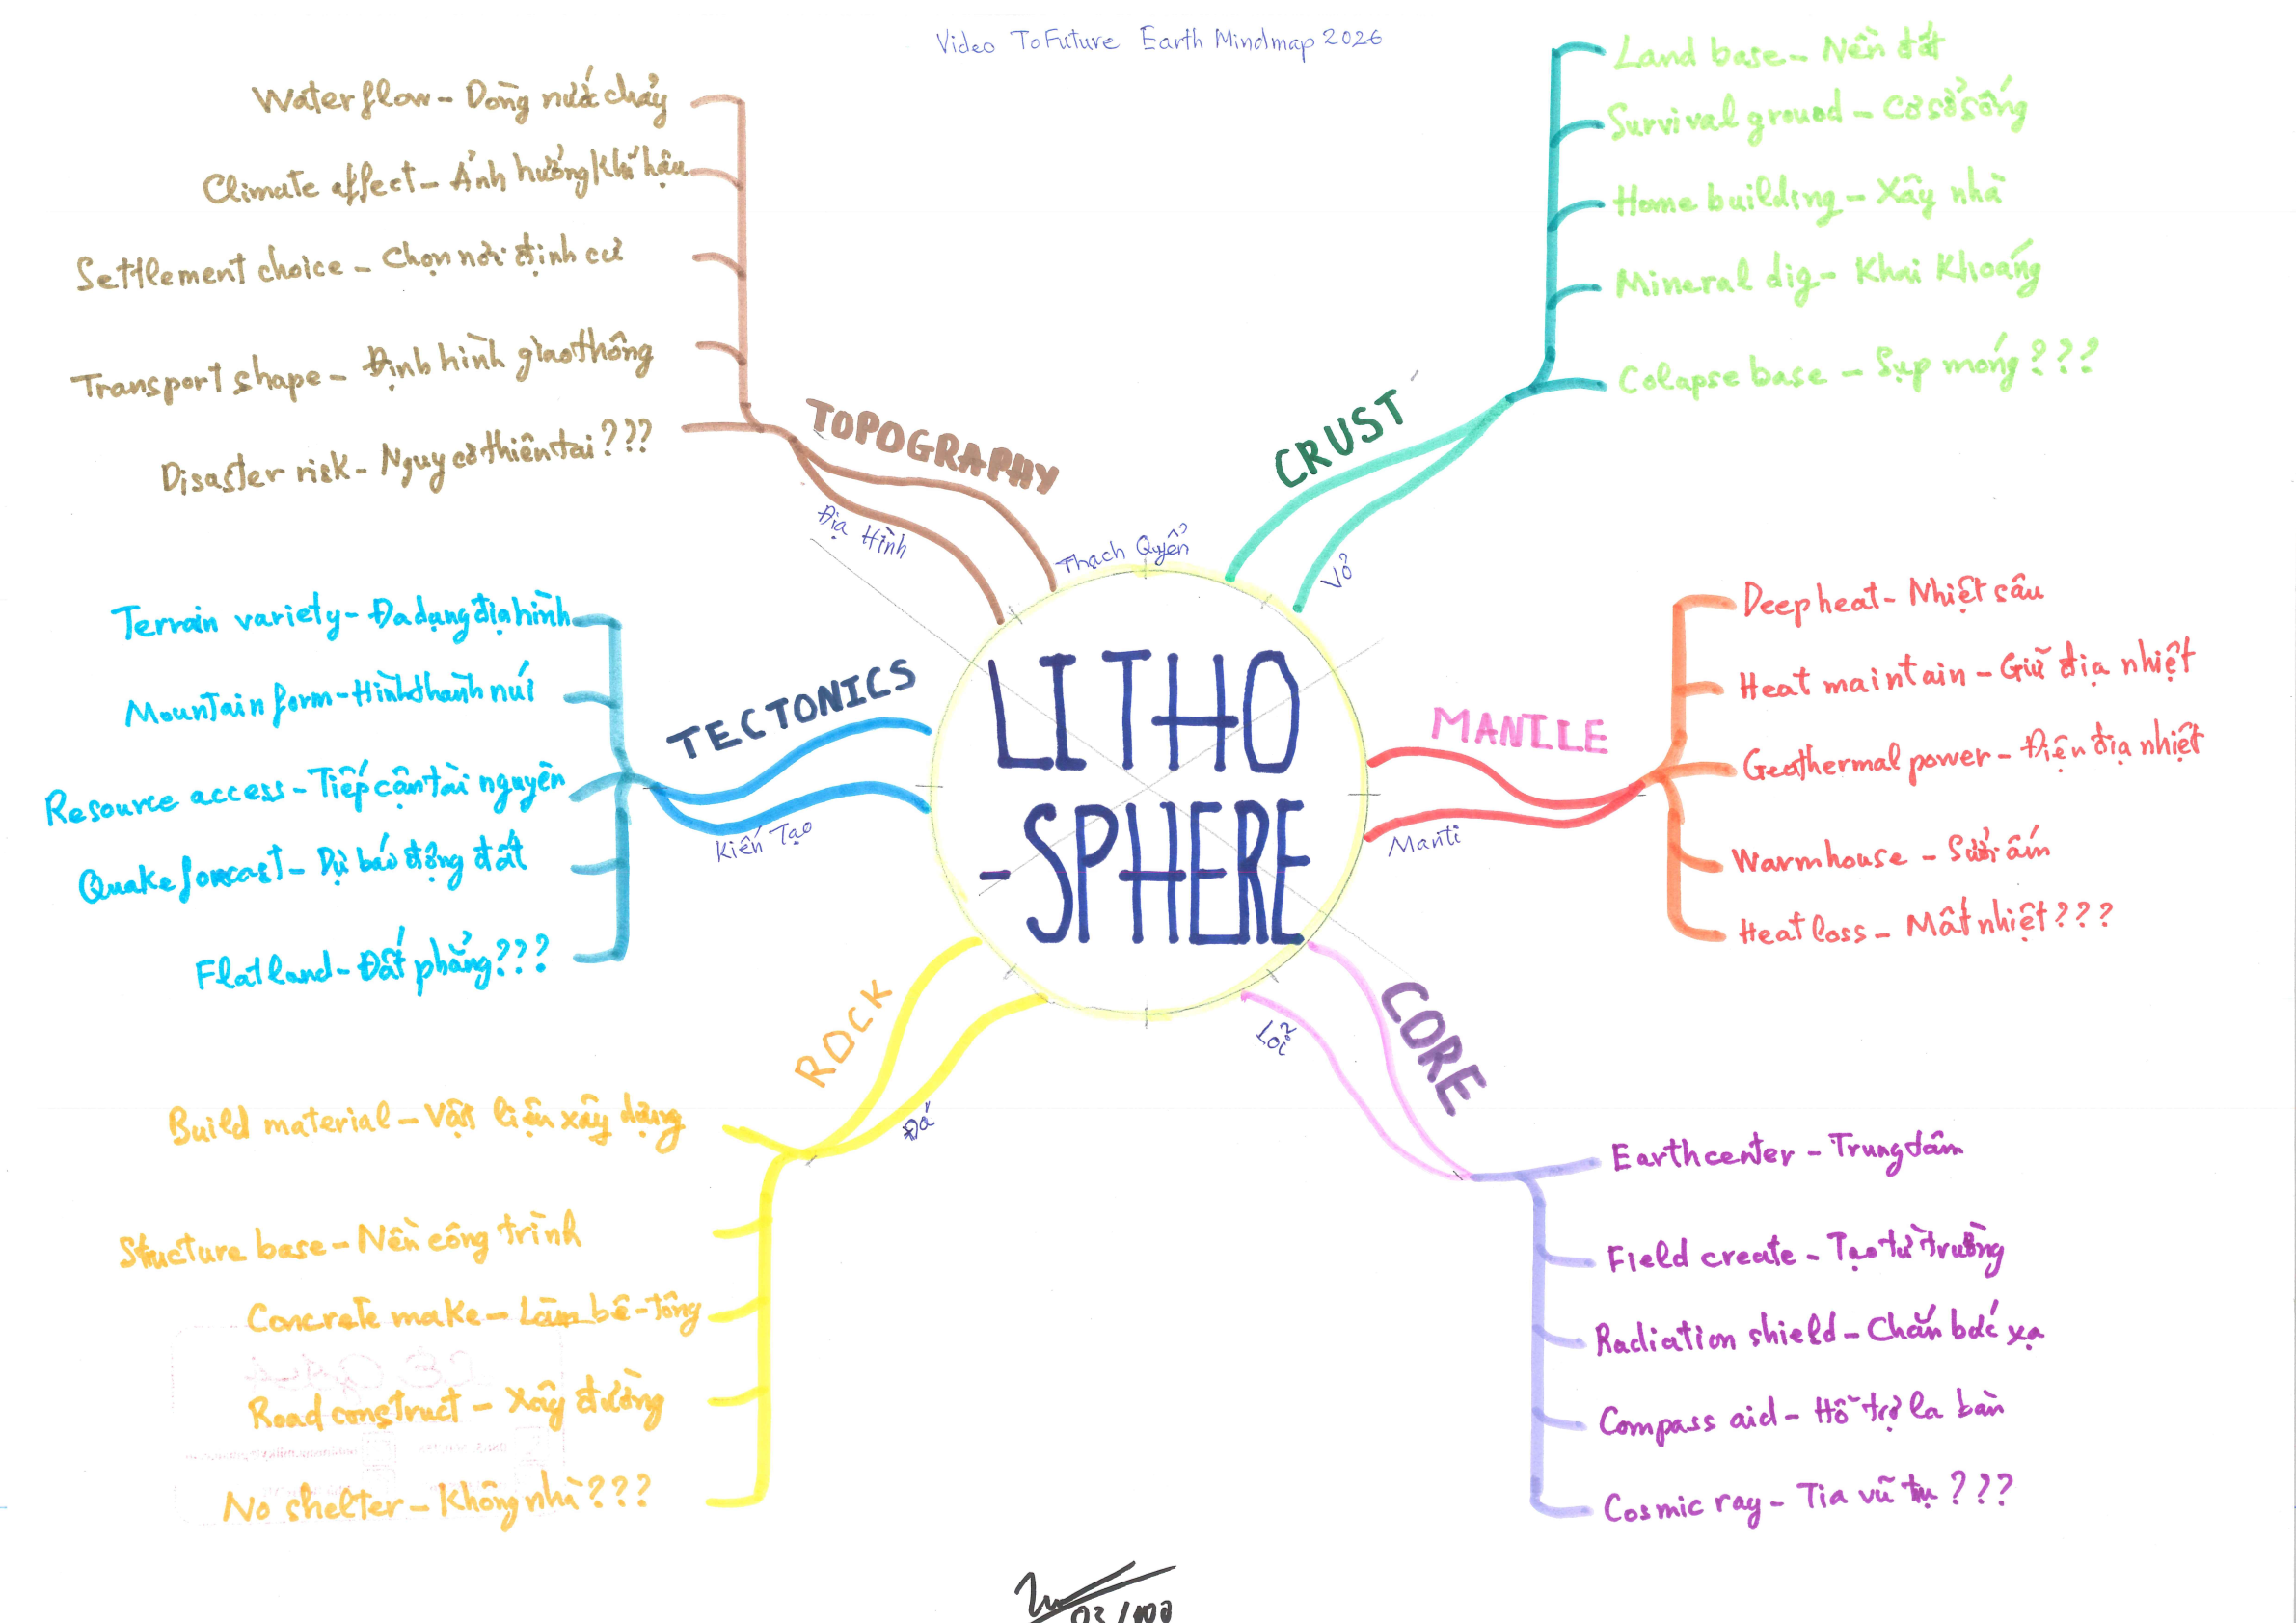 Video ToFuture Earth Mindmap 2026
LITHO
-SPHERE
Thạch Quyển
CRUST
Vỏ
Land base - Nền đất
Survival grouod - Cơ sở sống
Home building - Xây nhà
Mineral dig - Khai Khoáng
Colapse base - Sụp móng ???
MANTLE
Manti
Deep heat - Nhiệt sâu
Heat maintain - Giữ địa nhiệt
Geothermal power - Điện địa nhiệt
Warmhouse - Sưởi ấm
Heat loss - Mất nhiệt ???
CORE
Lõi
Earth center - Trung tâm
Field create - Tạo từ trường
Radiation shield - Chắn bức xạ
Compass aid - Hỗ trợ la bàn
Cosmic ray - Tia vũ trụ ???
ROCK
Đá
Build material - Vật liệu xây dựng
Structure base - Nền công trình
Concrete make - Làm bê-tông
Road construct - Xây đường
No shelter - Không nhà ???
TECTONICS
Kiến Tạo
Terrain variety - Đa dạng địa hình
Mountain form - Hình thành núi
Resource access - Tiếp cận tài nguyên
Quake forcast - Dự báo động đất
Flat land - Đất phẳng ???
TOPOGRAPHY
Địa Hình
Water flow - Dòng nước chảy
Climate affect - Ảnh hưởng khí hậu
Settlement choice - Chọn nơi định cư
Transport shape - Định hình giao thông
Disaster risk - Nguy cơ thiên tai ???
03/100